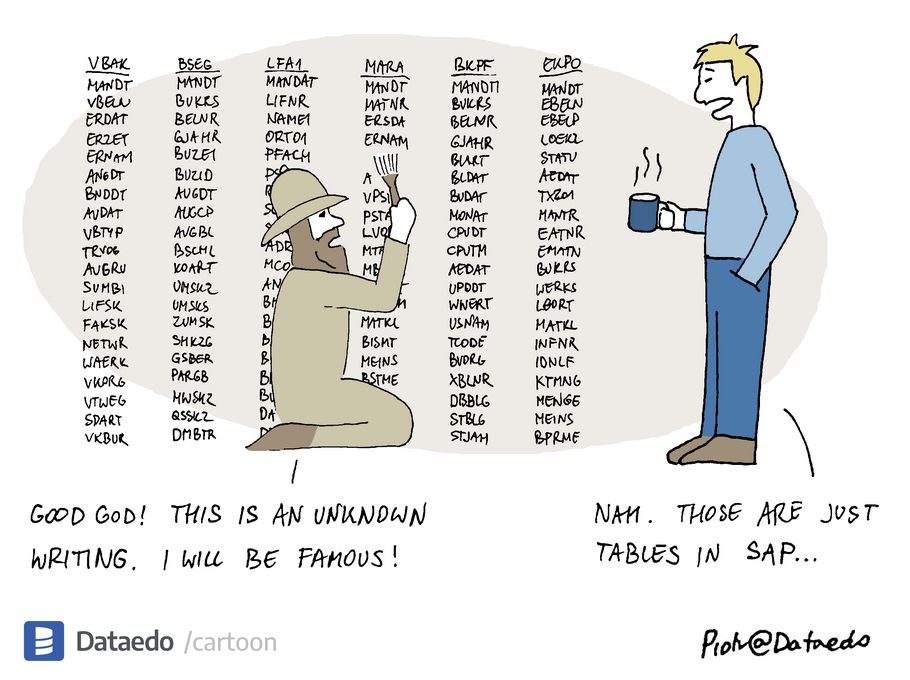 VBAK
MANDT
VBELN
ERDAT
ERZET
ERNAM
ANGDT
BNDDT
AUDAT
VBTYP
TRVOG
AUGRU
SUMBI
LIFSK
FAKSK
NETWR
WAERK
VKORG
VTWEG
SPART
VKBUR
BSEG
MANDT
BUKRS
BELNR
GJAHR
BUZEI
BUZID
AUGDT
AUGCP
AVGBL
BSCHL
KOART
UMSKZ
UMSKS
ZUMSK
SHKZG
GSBER
PARGB
MWSKZ
QSSKZ
DMBTR
LFA1
MANDAT
LIFNR
NAME1
ORT01
PFACH
ADR
MCO
MARA
MANDT
MATNR
ERSDA
ERNAM
VPS
PSTA
MATKL
BISMT
MEINS
BSTME
BKPF
MANDT
BUKRS
BELNR
GJAHR
BLART
BLDAT
BUDAT
MONAT
CPUDT
CPUTM
AEDAT
UPDDT
WWERT
USNAM
TCODE
BVORG
XBLNR
DBBLG
STBLG
STJAH
EKPO
MANDT
EBELN
EBELP
LOEKZ
STATU
AEDAT
TXZ01
MANTR
EATNR
EMATN
BUKRS
WERKS
LGORT
MATKL
INFNR
IDNLF
KTMNG
MENGE
MEINS
BPRME
GOOD GOD! THIS IS AN UNKNOWN
WRITING. I WILL BE FAMOUS!
NAH. THOSE ARE JUST
TABLES IN SAP...
Dataedo /cartoon
Piotr@Dataedo